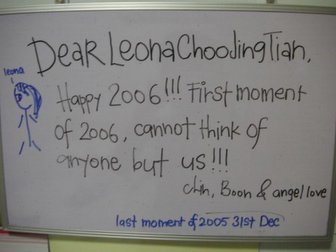 Dear LeonaChooJingTian,
leona
Happy 2006!!! First moment
of 2006, cannot think of
anyone but us!!!
Chin, Boon & angel love
last moment of 2005 31st Dec